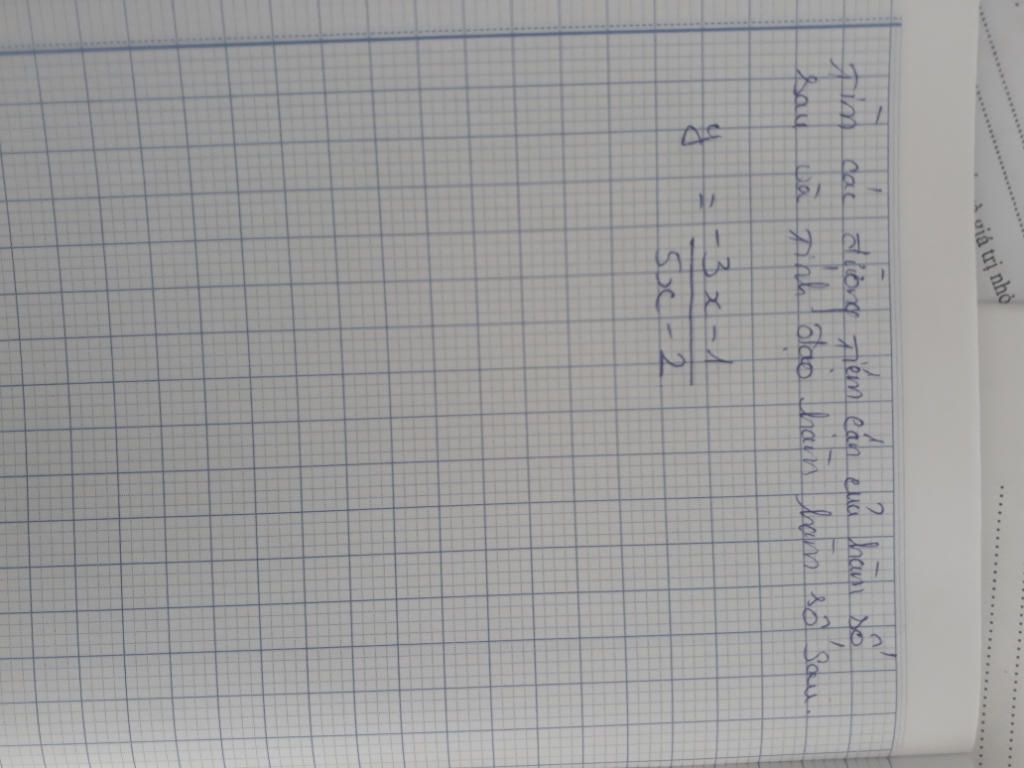 Tìm các đường tiệm cận của hàm số
sau và tính đạo hàm hàm số sau.
y = -3x - 1
5x - 2
giá trị nhỏ